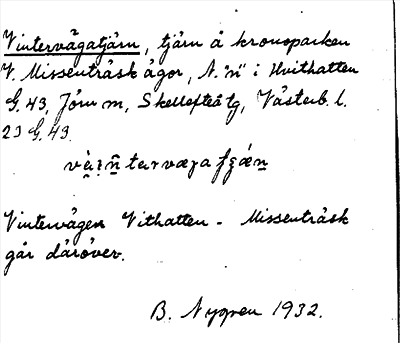 Vintervågatjärn, tjärn å kronoparken
V. Missenträsk ägor, A. "n" i Hvithatten
G. 43, Jörn sn, Skellefteå tg, Västerb. l.
23 G. 43.
Vintervägen Vithatten - Missenträsk
går däröver.
B. Nygren 1932.